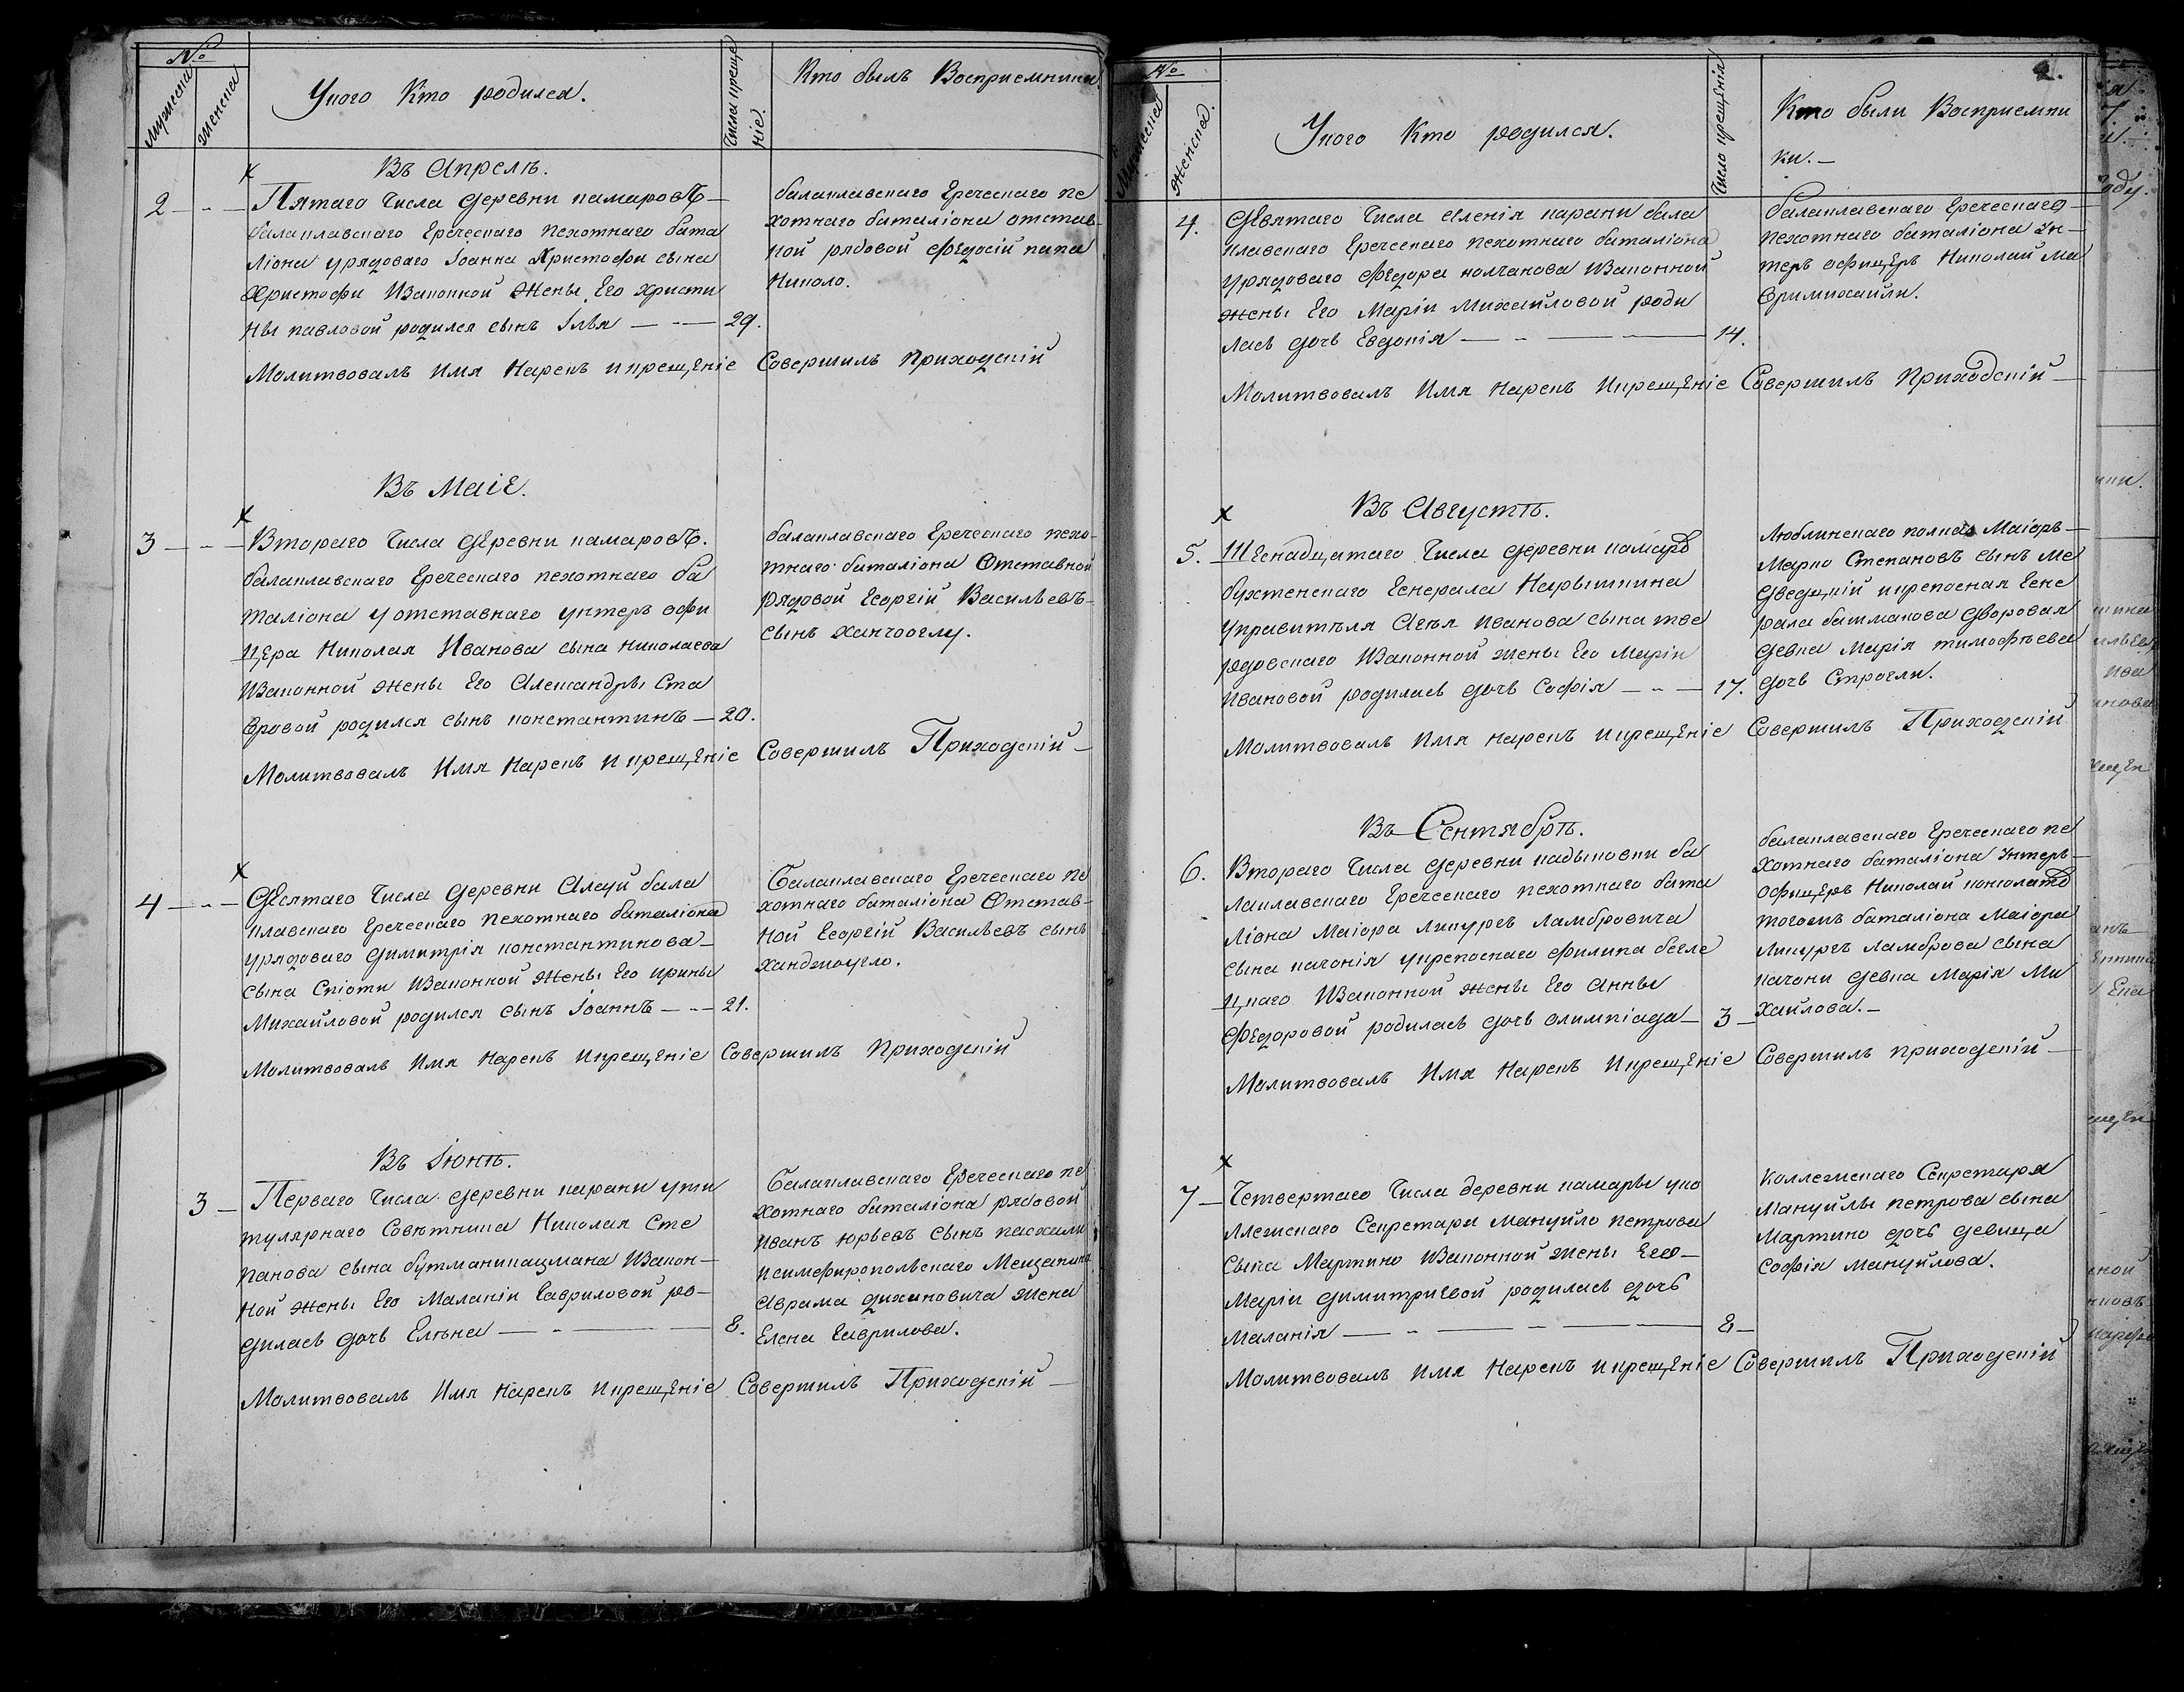 №
Мужеска
Женска
У кого Кто родился.
Числа креще
ніе.
Кто былъ Восприемники
Въ Апрелѣ.
2 Пятаго Числа деревни камаровѣ
балаклавскаго Греческаго пехотнаго бата
ліона урядоваго Іоанна Христофи сына
Христофи Изаконной Жены Его Христи
ны павловой родился сынъ Ілья 29.
балаклавскаго Греческаго пе
хотнаго баталіона отстав
ной рядовой Федосій папа
Николо.
Молитвовалъ Имя Нарекъ и крещеніе Совершилъ Приходскій
Въ Маіе.
3 Втораго Числа деревни камаровѣ.
балаклавскаго Греческаго пехотнаго ба
таліона у отставнаго унтеръ офи
цера Николая Иванова сына николаева
Изаконной жены Его Александры Ста
вровой родился сынъ константинъ 20.
балаклавскаго Греческаго пехо
тнаго баталіона Отставной
рядовой Георгій Васильевъ
сынъ ханчооглу.
Молитвовалъ Имя Нарекъ и крещеніе Совершилъ Приходскій
4 Десятаго Числа деревни Алсуй бала
клавскаго Греческаго пехотнаго баталіона
урядоваго Димитрія константинова
сына Спіоти Изаконной Жены Его ирины
Михайловой родился сынъ Іоаннъ 21.
Балаклавскаго Греческаго пе
хотнаго баталіона Отстав
ной Георгій Васильевъ сынъ
ханджоугло.
Молитвовалъ Имя Нарекъ и крещеніе Совершилъ Приходскій
Въ Іюнѣ.
3 Перваго Числа деревни карани у ти
тулярнаго Совѣтника Николая Сте
панова сына Изакон
ной жены Его Маланіи Гавриловой ро
дилась дочь Елѣна 8.
Балаклавскаго Греческаго пе
хотнаго баталіона рядовой
иванъ юрьевъ сынъ пасхали
исимферопольскаго Мещанина
Аврама жена
Елена Гаврилова.
Молитвовалъ Имя нарекъ и крещеніе Совершилъ Приходскій
№
Мужеска
Женска.
У кого Кто родился.
Число крещенія
Кто были Восприемни
ки.
2.
4. Девятаго Числа карани бала
клавскаго Греческаго пехотнаго баталіона
урядоваго Федора колчанова Изаконной
жены Его Маріи Михайловой роди
лась дочь Евдокія 14.
балаклавскаго Греческаго
пехотнаго баталіона ун
теръ офицеръ Николай Ма
вримихайли.
Молитвовалъ Имя Нарекъ и крещеніе Совершилъ Приходскій
Въ Августѣ.
5. Шеснадцятаго Числа деревни камаръ
Генерала Нарышкина
управителя Иванова сына тве
рдовскаго Изаконной жены Его Маріи
ивановой родилась дочь Софія 17.
Люблинскаго полка Маіоръ
Марко Степановъ сынъ Ме
икрепосная Гене
рала башмакова дворовая
девка Марія тимофѣева
дочь Строгли.
Молитвовалъ Имя нарекъ и крещеніе Совершилъ Приходскій
Въ Сентябрѣ.
6. Втораго Числа деревни кадыковки ба
лаклавскаго Греческаго пехотнаго бата
ліона Маіора ликургъ ламбровича
сына качонія укрепоснаго Филипа бегле
цкаго Изаконной жены Его Анны
Федоровой родилась дочь олимпіада 3
балаклавскаго Греческаго пе
хотнаго баталіона Унтеръ
Офицеръ Николай
тогожъ баталіона Маіора
Ликургъ ламброва сына
качони девка Марія Ми
хайлова.
Молитвовалъ Имя Нарекъ и крещеніе Совершилъ приходскій
7 Четвертаго Числа деревни камары уко
лежскаго Секретаря Мануйло петрова
сына Мартино Изаконной жены Его
Маріи димитриевой родилась дочь
Маланія 8
Коллежскаго Секретаря
Мануйлы петрова сына
Мартино дочь девица
Софія мануйлова.
Молитвовалъ имя Нарекъ и крещеніе Совершилъ Приходскій